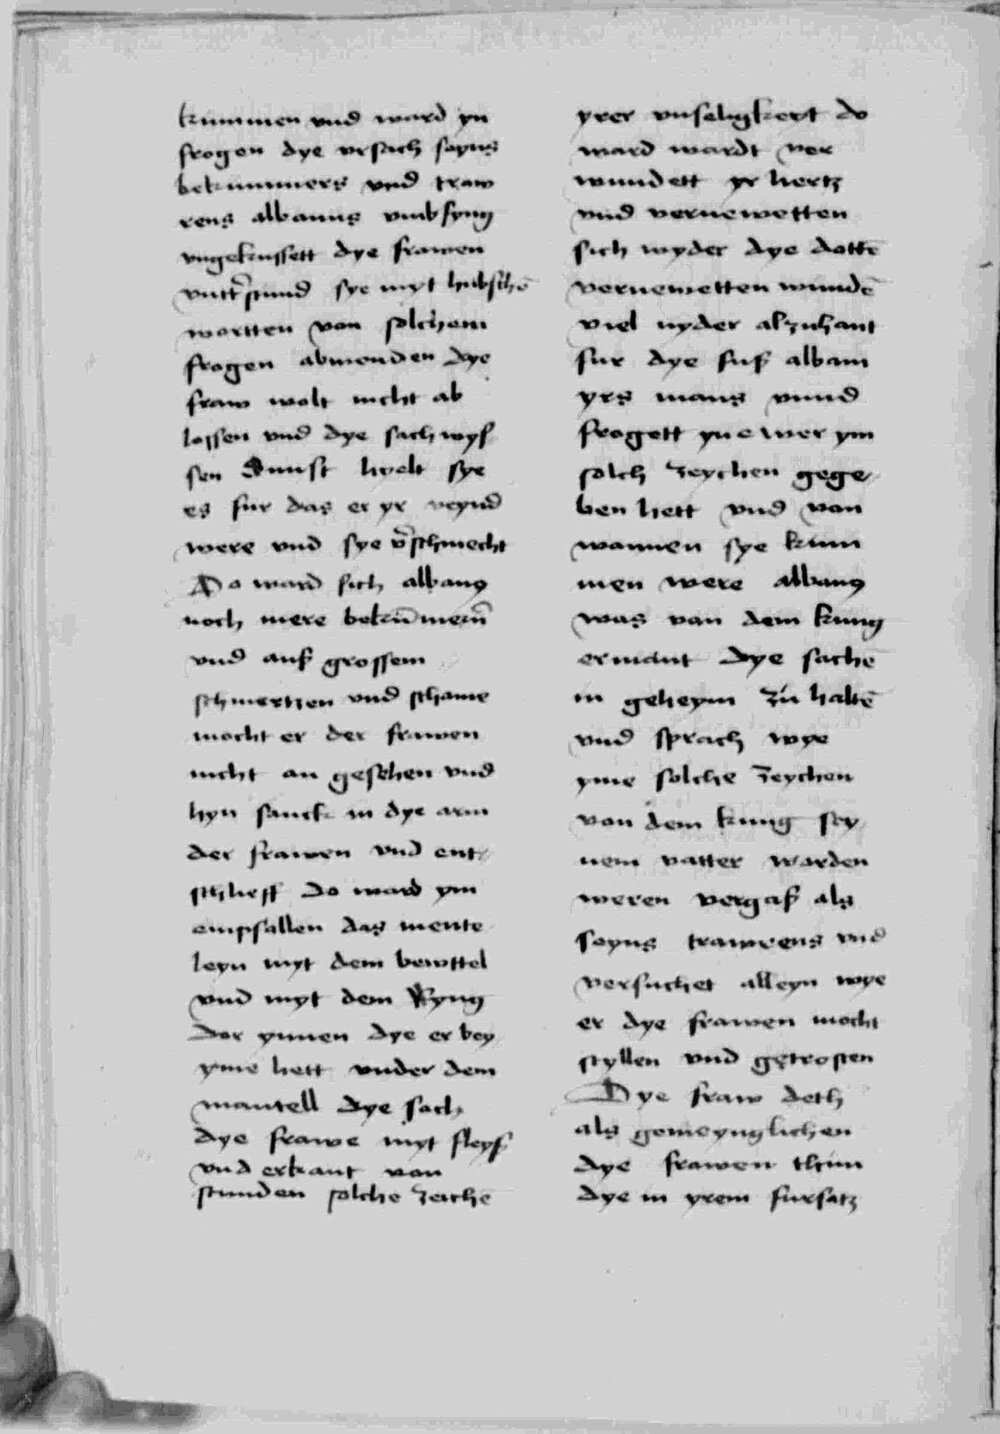 kummen vnd ward yn
frogen dye vrsach seyns
bekummers vnd traw
rens albanus vmbfyng
vngekussett dye frawen
vntterstund sye myt hubschē
wortten von solchem
frogen abwenden Dye
fraw wolt nicht ab
lossen vnd dye sach wys
sen Sunst hyelt sye
es fur das er yr veynd
were vnd sye v̄schmecht
Do ward sich albanus
noch mere bekūmern̄
vnd auß grossem
schmertzen vnd schame
mocht er der frawen
nicht an gesehen vnd
hyn sanck in dye arm
der frawen vnd ent
schlieff Do ward ym
empfallen das mente
leyn myt dem bewttel
vnd myt dem Ryng
Dor ynnen dye er bey
yme hett vnder dem
mantell Dye sach
dye frawe myt fleyß
vnd erkant von
stunden solche zeichē
yrer vnseligkeyt do
ward wardt ver
wundett yr hertz
vnd vernewetten
sich wyder dye dottē
vernewetten wundē
viel nyder alzuhant
fur dye fuß albani
yrs mans vnnd
frogett yne wer ym
solch zeychen gege
ben hett vnd von
wannen sye kum
men were albanus
was von dem kung
ermant Dye sachē
in geheym zu haltē
vnd sprach wye
yme solche zeychen
von dem kung sey
nem vatter worden
weren vergaß als
seyns trawrens vnd
versuchet alleyn wye
er dye frawen mocht
styllen vnd getrosten
Dye fraw deth
als gemeynglichen
dye frawen thun
dye in yrem fursatz